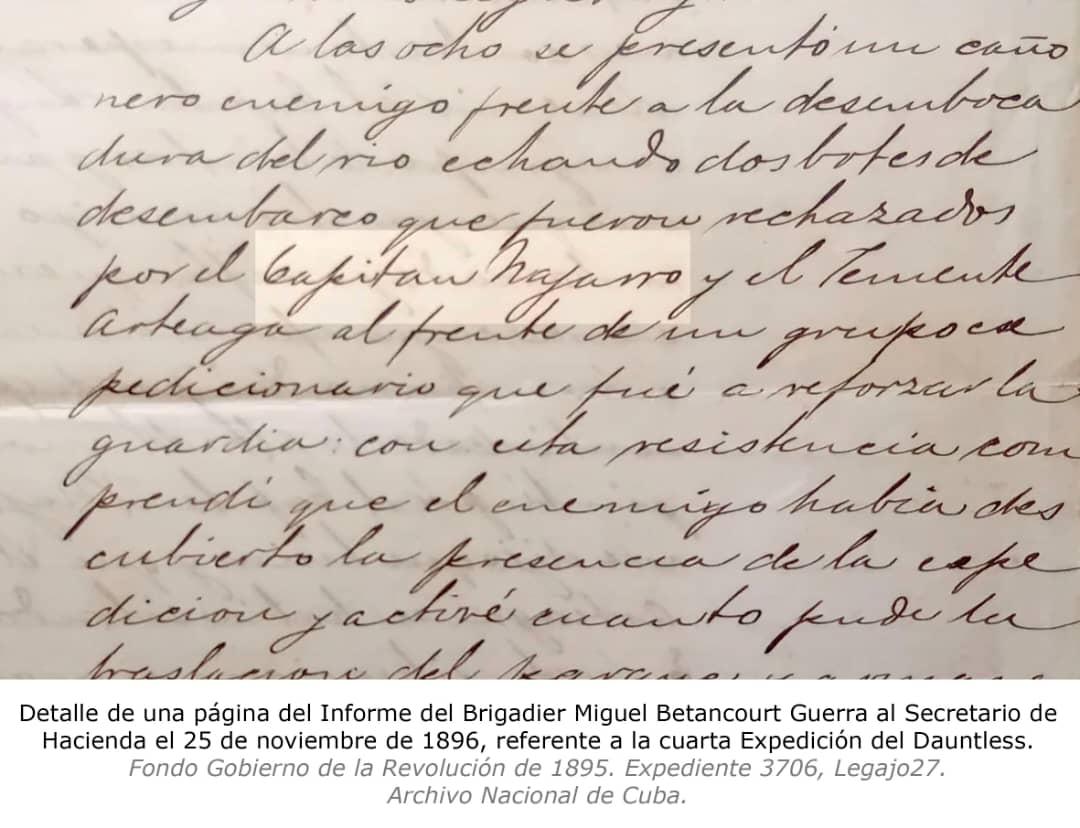 A las ocho se presentó un caño
nero enemigo frente a la desemboca
dura del rio echando dos botes de
desembarco que fueron rechazados
por el Capitan Najarro y el Teniente
Arteaga al frente de un grupo ex
pedicionario que fué a reforzar la
guardia: con esta resistencia com
prendí que el enemigo habia des
cubierto la presencia de la espe
dicion y activé cuanto pude la
traslacion del
Detalle de una página del Informe del Brigadier Miguel Betancourt Guerra al Secretario de
Hacienda el 25 de noviembre de 1896, referente a la cuarta Expedición del Dauntless.
Fondo Gobierno de la Revolución de 1895. Expediente 3706, Legajo27.
Archivo Nacional de Cuba.